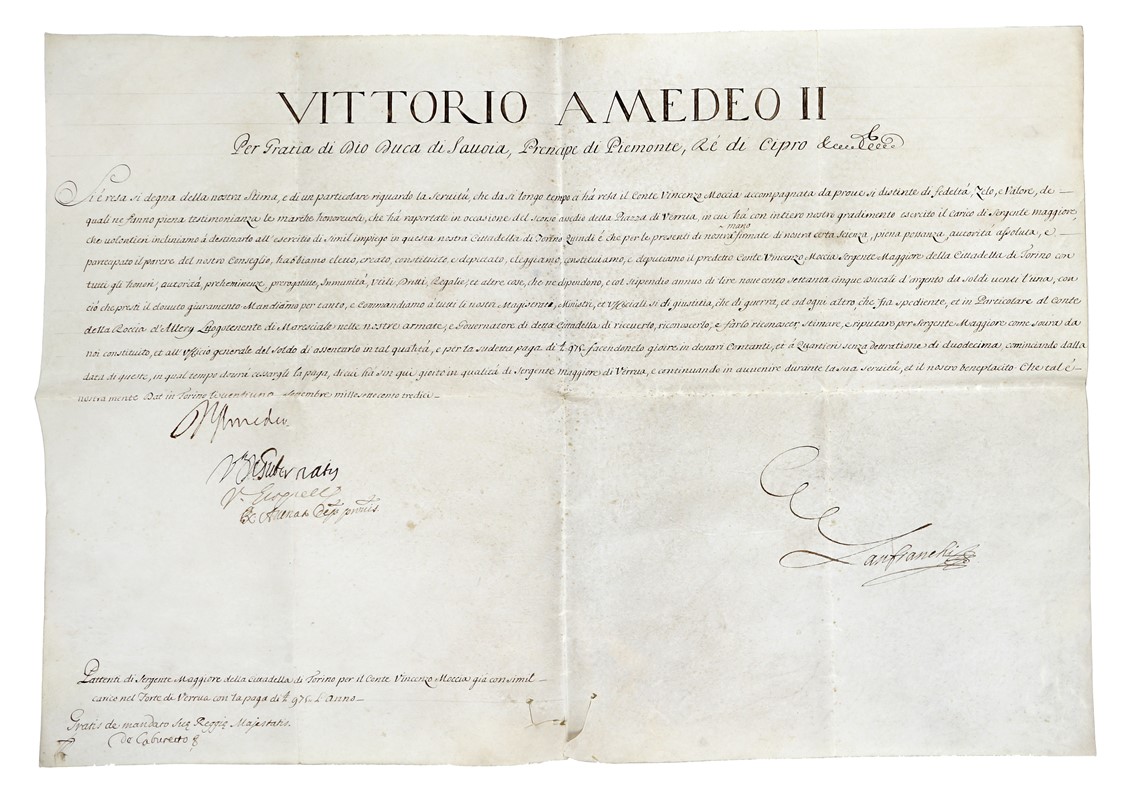 VITTORIO AMEDEO II
Per Gratia di Dio Duca di Sauoia, Prencipe di Piemonte, Ré di Cipro &c.
Si é resa si degna della nostra Stima, e di un particolare riguardo la Seruitù, che da si longo tempo ci há resa il Conte Vincenzo Moccia accompagnata da proue si distinte di fedeltá, Zelo, e Valore, de
quali ne fanno piena testimonianza le marche honoreuoli, che há reportate in occasione del scorso assedio della Piazza di Verrua, in cui há con intiero nostro gradimento esercito il carico di Sergente maggiore,
che volontieri incliniamo á destinarlo all'esercitio di simil impiego in questa nostra Cittadella di Torino Quindi é che per le presenti di nostra mano firmate di nostra certa scienza, piena possanza, autoritá assoluta, e
participato il parere del nostro Conseglio, habbiamo eletto, creato, constituito, e deputato, eleggiamo, constituiamo, e deputiamo il predetto Conte Vincenzo Moccia Sergente Maggiore della Cittadella di Torino con
tutti gli honori, autoritá, preheminenze, prerogatiue, Immunitá, Vtili, Dritti, Regalie, et altre cose, che ne dipendono, e col stipendio annuo di lire nouecento settanta cinque ducali d'argento da soldi uenti l'una, con
ció che presti il douuto giuramento Mandiamo per tanto, e Commandiamo á tutti li nostri Magistrati, Ministri, et Vfficiali si di giustitia, che di guerra, et ad ogni altro, che fia spediente, et in Particolare al Conte
della Roccia d'Allery Luogotenente di Maresciale nelle nostre armate, e Gouernatore di detta Cittadella di riceuerlo, riconoscerlo, e farlo riconoscer, stimare, e riputare per Sergente Maggiore come soura da
noi constituito, et all'Vfficio generale del Soldo di assentarlo in tal qualitá, e per la sudetta paga di £ 975 facendonelo gioire in denari Contanti, et á Quartieri senza detratione di duodecima, cominciando dalla
data di queste, in qual tempo dourá cessargli la paga, di cui há sin qui gioito in qualitá di Sergente maggiore di Verrua, e continuando in auuenire durante la sua seruitù, et il nostro beneplacito Che tal é
nostra mente Dat in Torino li uentiuno Settembre millesettecento tredici
V Amedeo
V. De Gubernatis
Lanfranchi
Pattenti di Sergente Maggiore della Cittadella di Torino per il Conte Vincenzo Moccia giá con simil
carico nel Forte di Verrua con la paga di £ 975 l'anno
Gratis de mandato Suę Reggię Majestatis
De Cabureto